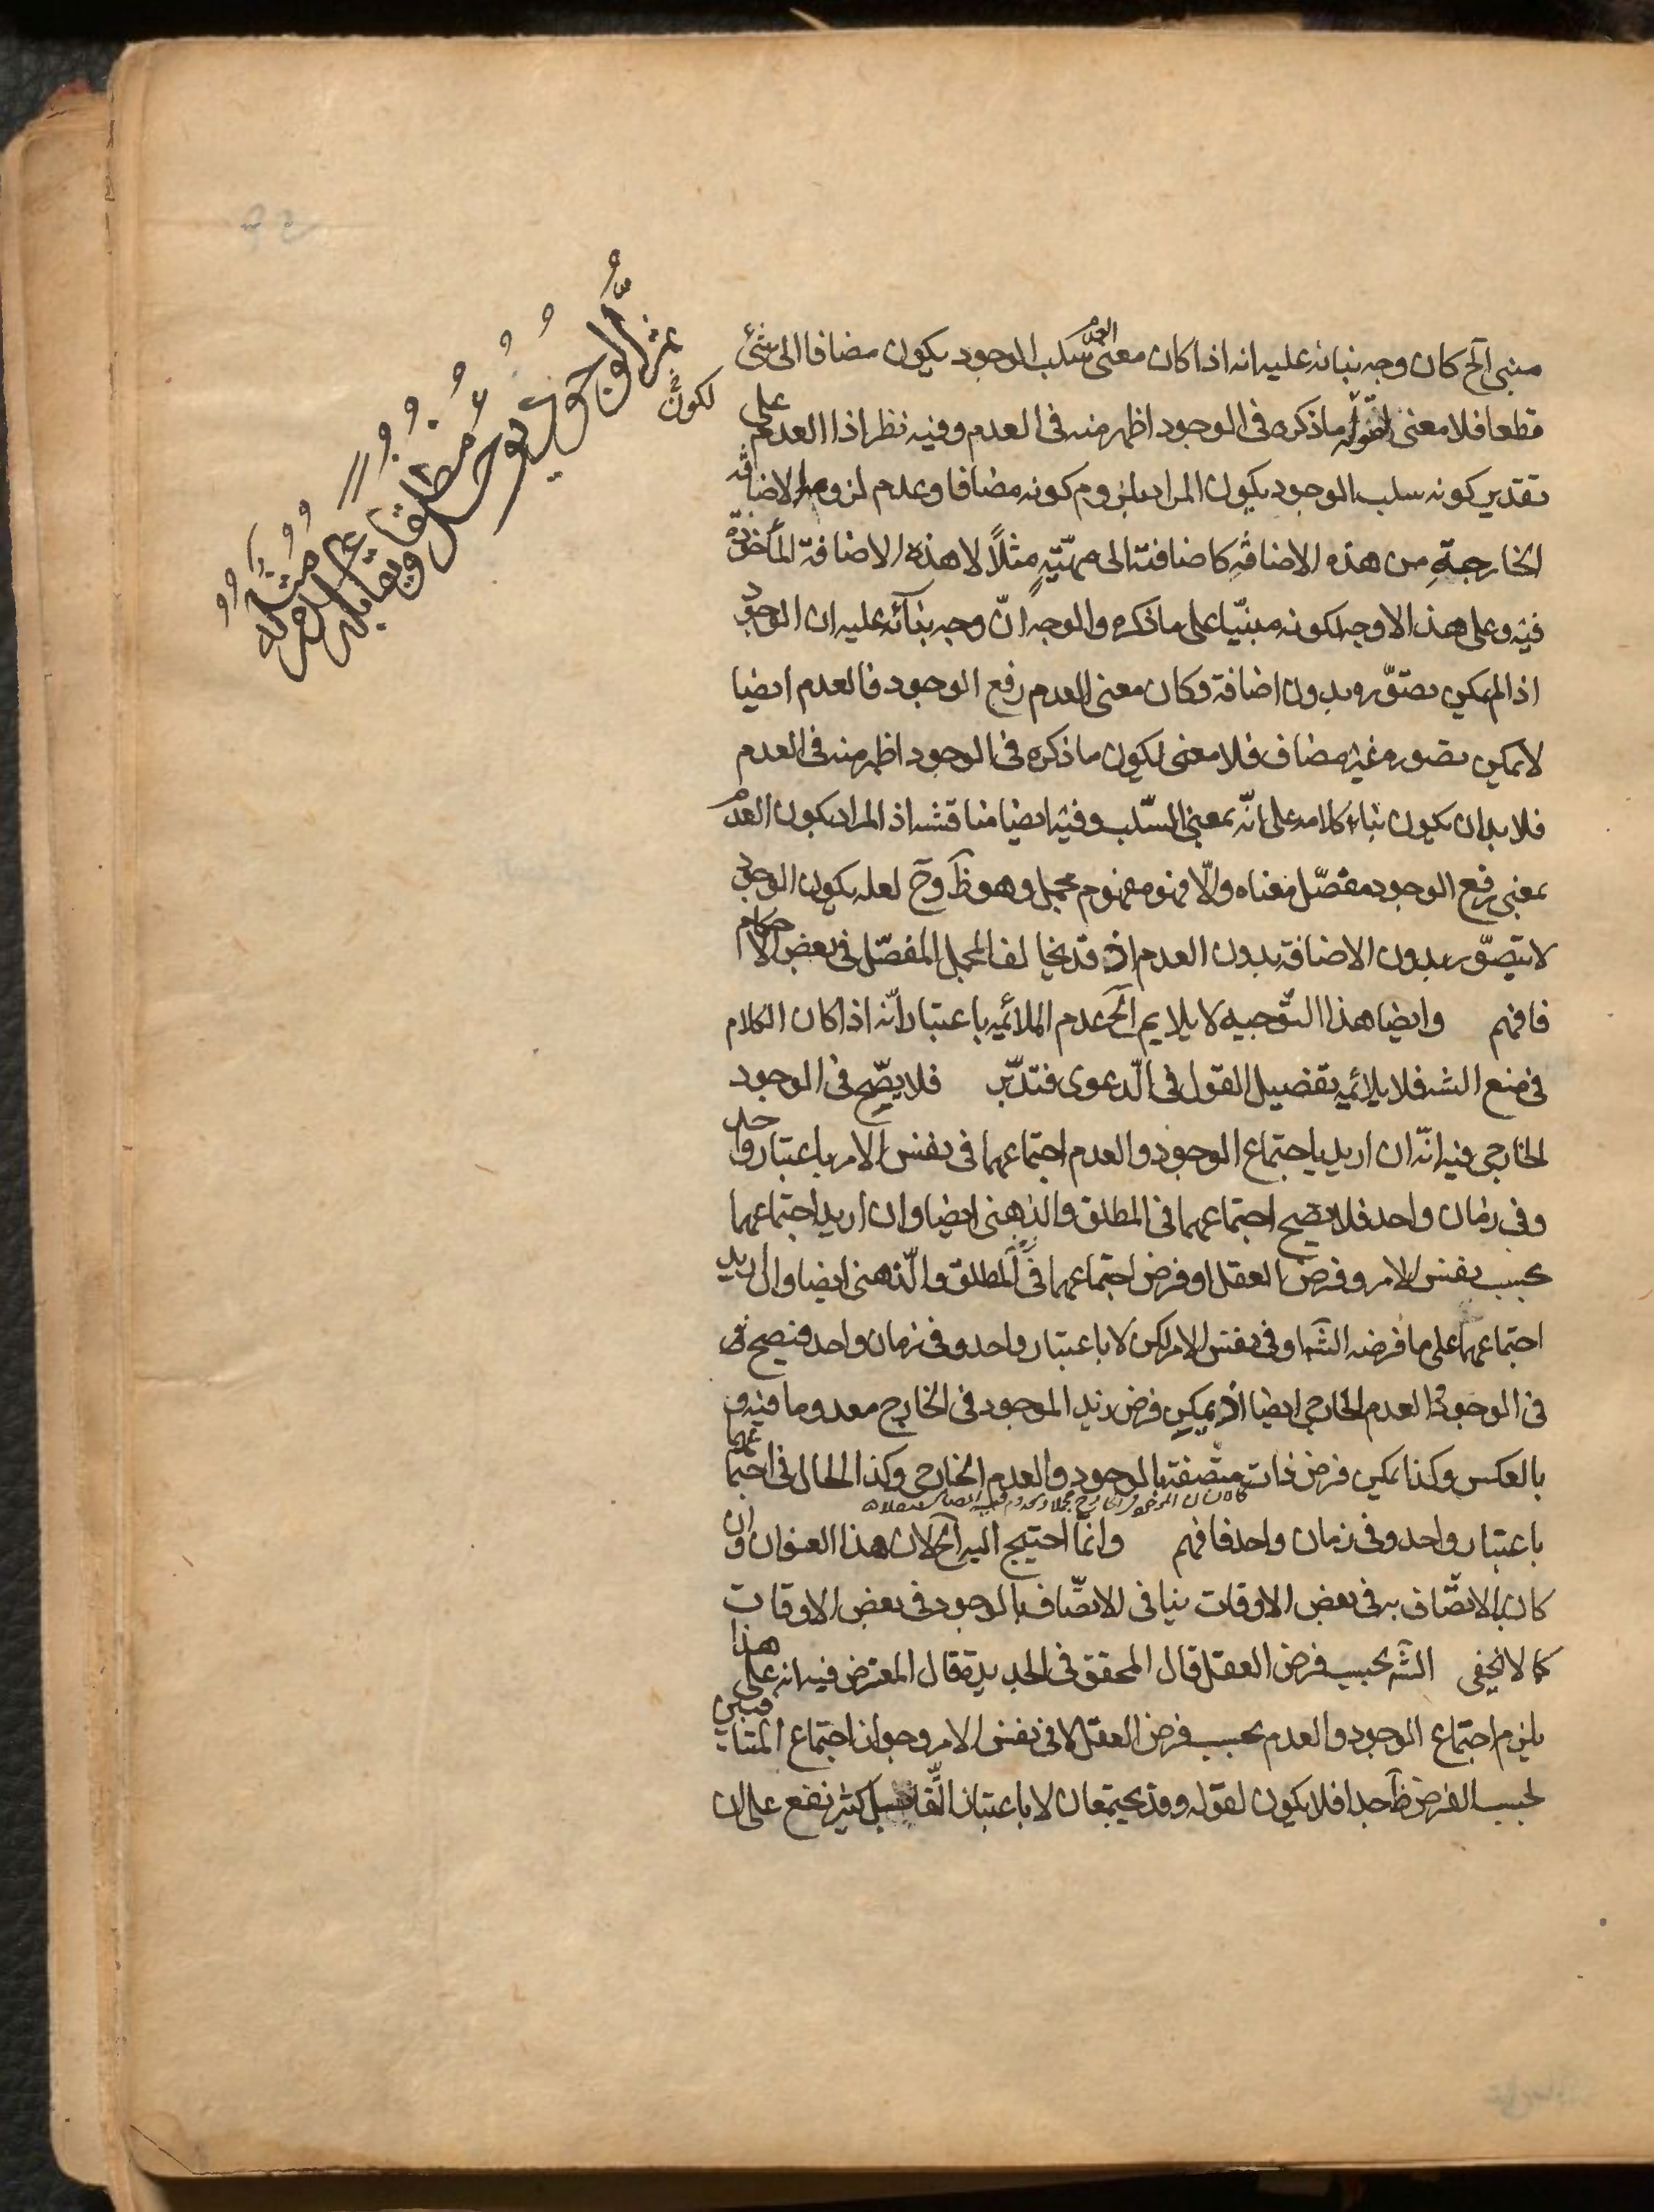 مبنى آلخ كان وجه بنائه عليه انه اذا كان معنى العدم سلب الوجود يكون مضافا الى شئ
قطعا فلا معنى لقوله ما ذكره فى الوجود اظهر منه فى العدم وفيه نظر اذا العدم على
تقدير كونه سلب الوجود يكون المراد بلزوم كونه مضافا وعدم لزومه الاضافة
الخارجة من هذه الاضافة كاضافته الى مهيّتهٍ مثلاً لا هذه الاضافة المأخوذة
فيه وعلى هذا الاوجه لكونه مبنيّا على ما ذكره والوجه انّ وجه بنآئه عليه ان الوجود
اذا لم يمكن تصوّره بدون اضافة وكان معنى العدم رفع الوجود فالعدم ايضا
لا يمكن تصوره غير مضاف فلا معنى لكون ما ذكره فى الوجود اظهر منه فى العدم
فلا بد ان يكون بناء كلامه على انّه بمعنى السّلب وفيه ايضا مناقشه اذ المراد بكون العدم
بمعنى رفع الوجود مفصّل معناه والّا فهو مفهوم مجمل وهو ظَ وحَ لعله يكون الوجود
لا يتصوّر بدون الاضافة بدون العدم اذ قد يخالف المجمل المفصّل فى بعض الاحكام
فافهم وايضا هذا التّوجيه لا يلايم آلخ عدم الملائمه باعتبار انّه اذا كان الكلام
فى منع الشه فلا يلائمه تفصيل القول فى الدّعوى فتدبّر فلا يصّح فى الوجود
الخارجى فيه انّه ان اريد باجتماع الوجود والعدم اجتماعهما فى نفس الامر باعتبار واحد
وفى زمان واحد فلا يصّح اجتماعهما فى المطلق والذهنى ايضا وان اريد اجتماعهما
بحسب نفس الامر وفرض العقل او فرض اجتماعهما فى المطلق والّذهنى ايضا وان اريد
اجتماعهما على ما فرضه الشه او فى نفس الامر لكن لا باعتبار واحد وفى زمان واحد فيصح
فى الوجود والعدم الخارجى ايضا اذ يمكن فرض زيد الموجود فى الخارج معدوما فيه و
بالعكس وكذا يمكن فرض ذات متّصفة بالوجود والعدم الخارجى وكذا الحال فى اجتماعهما
باعتبار واحد وفى زمان واحد فافهم وانّما احتيج اليه آلخ لان هذا العنوان وان
كان الاتصّاف به فى بعض الاوقات ينافى الاتصّاف بالوجود فى بعض الاوقات
كما لا يخفى الشه بحسب فرض العقل قال المحقق فى الجديدة قال المعترض فيه انه على هذا
يلزم اجتماع الوجود والعدم بحسب فرض العقل لا فى نفس الامر وجواز اجتماع المتنافيين
بحسب الفرض ظَ جدا فلا يكون لقوله وقد يجتمعان لا باعتبار التّقابل كثير نفع على ان
لكونٍ
ثم الوجود يؤخذ
مطلقا ويقابله
عدم مثله